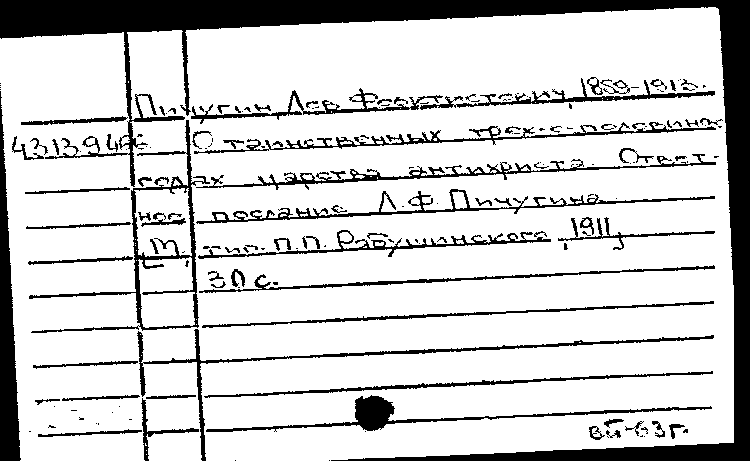 Пичугин, Лев Феоктистович, 1859-1913.
О таинственных трех-с-половиных
годах царства антихриста. Ответ-
ное послание Л.Ф. Пичугина
[М, тип. П.П. Рябушинского, 1911]
30 с.
вй-63г.